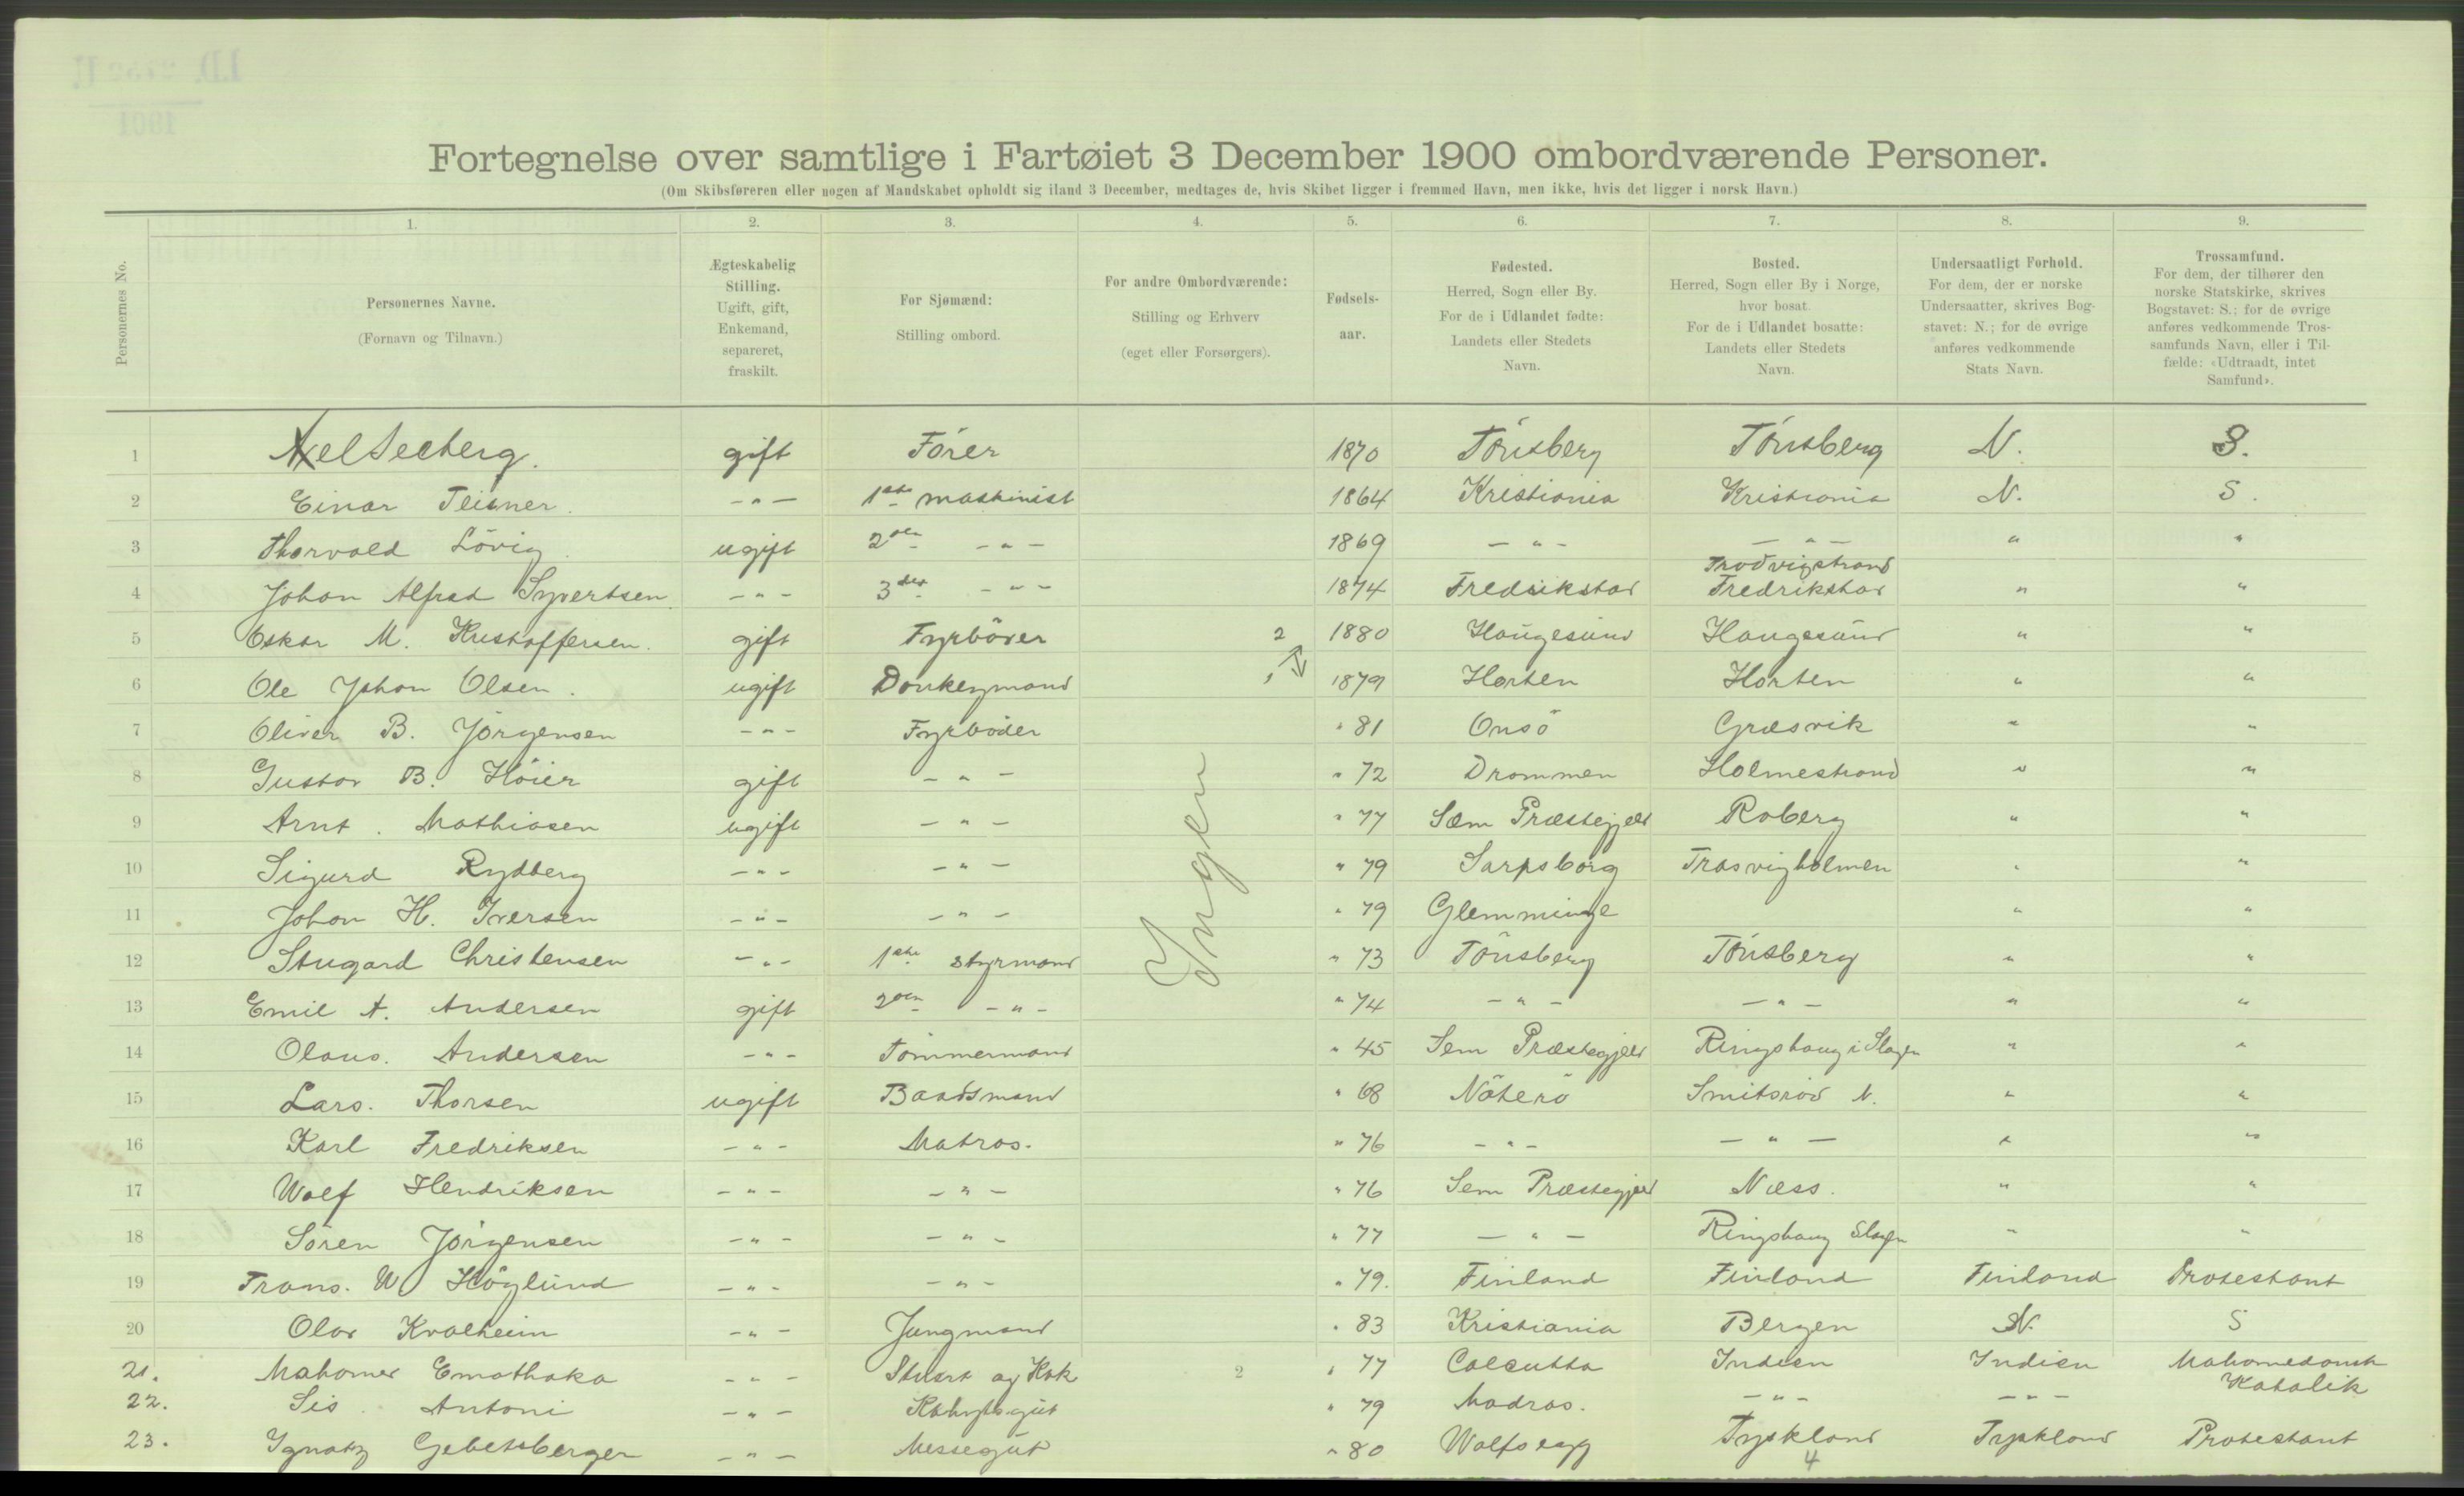 Fortegnelse over samtlige i Fartøiet 3 December 1900 ombordværende Personer.
(Om Skibsføreren eller nogen af Mandskabet opholdt sig iland 3 December, medtages de, hvis Skibet ligger i fremmed Havn, men ikke, hvis det ligger i norsk Havn.)
Personernes No.
1. 2. 3. 4. 5. 6. 7. 8. 9.
Personernes Navne.
(Fornavn og Tilnavn.)
Ægteskabelig
Stilling.
Ugift, gift,
Enkemand,
separeret,
fraskilt.
For Sjømænd:
Stilling ombord.
For andre Ombordværende:
Stilling og Erhverv
(eget eller Forsørgers).
Fødsels-
aar.
Fødested.
Herred, Sogn eller By.
For de i Udlandet fødte:
Landets eller Stedets
Navn.
Bosted.
Herred, Sogn eller By i Norge,
hvor bosat.
For de i Udlandet bosatte:
Landets eller Stedets
Navn.
Undersaatligt Forhold.
For dem, der er norske
Undersaatter, skrives Bog-
stavet: N.; for de øvrige
anføres vedkommende
Stats Navn.
Trossamfund.
For dem, der tilhører den
norske Statskirke, skrives
Bogstavet: S.; for de øvrige
anføres vedkommende Tros-
samfunds Navn, eller i Til-
fælde: «Udtraadt, intet
Samfund».
1 Axel Seeberg. gift Förer 1870 Tönsberg Tönsberg N. S.
2 Einar Teisner. -"- 1ste maskinist 1864 Kristiania Kristiania N. S.
3 Thorvald Lövig. ugift 2den -"- 1869 -"- -"- " "
Trosvigstrand
4 Johan Alfred Syvertsen. -"- 3die -"- 1874 Fredrikstad Fredrikstad " "
5 Oskar M. Kristoffersen. gift Fyrböder 2 1880 Haugesund Haugesund " "
6 Ole Johan Olsen. ugift Donkeymand 1 1879 Horten Horten " "
7 Oliver B. Jörgensen -"- Fyrböder " 81 Onsö Græsvik " "
8 Gustav B. Höier gift -"- " 72 Drammen Holmestrand " "
9 Arnt. Mathiasen ugift -"- " 77 Sem Præstegjeld Roberg " "
10 Sigurd Rydberg -"- -"- " 79 Sarpsborg Trosvigholmen " "
11 Johan H. Iversen -"- -"- " 79 Glemminge " "
Ingen
12 Stugard Christensen -"- 1ste styrmand " 73 Tönsberg Tönsberg " "
13 Emil A. Andersen gift 2den -"- " 74 -"- -"- " "
14 Olaus. Andersen -"- Tömmermand " 45 Sem Præstegjeld Ringshaug i Slagen " "
15 Lars. Thorsen ugift Baadsmand " 68 Nöterö Smidsröd N. " "
16 Karl Fredriksen -"- Matros. " 76 -"- -"- " "
17 Wolf Hendriksen -"- -"- " 76 Sem Præstegjeld Næss. " "
18 Sören Jörgensen -"- -"- " 77 -"- Ringshaug Slagen " "
19 Frans. W Höglund -"- -"- " 79. Finland Finland Finland Protestant
20 Olav Kvalheim -"- Jungmand " 83 Kristiania Bergen N. S
21. Mahomed Emathaka -"- Stuert og Kok 2 " 77 Calcutta Indien Indien Mahomedansk
22. Sis Antoni -"- Kahytsgut " 79 Madras. -"- -"- Katolik
23. Ignatz Gebetsberger -"- Messegut " 80 Wolfsegg Tyskland Tyskland Protestant
4